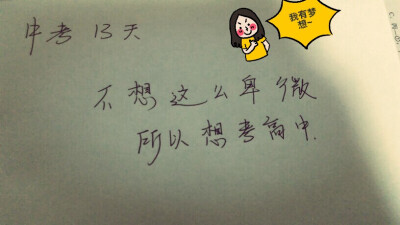 中考 13天
我有梦
想~
不想这么卑微
所以想考高中.